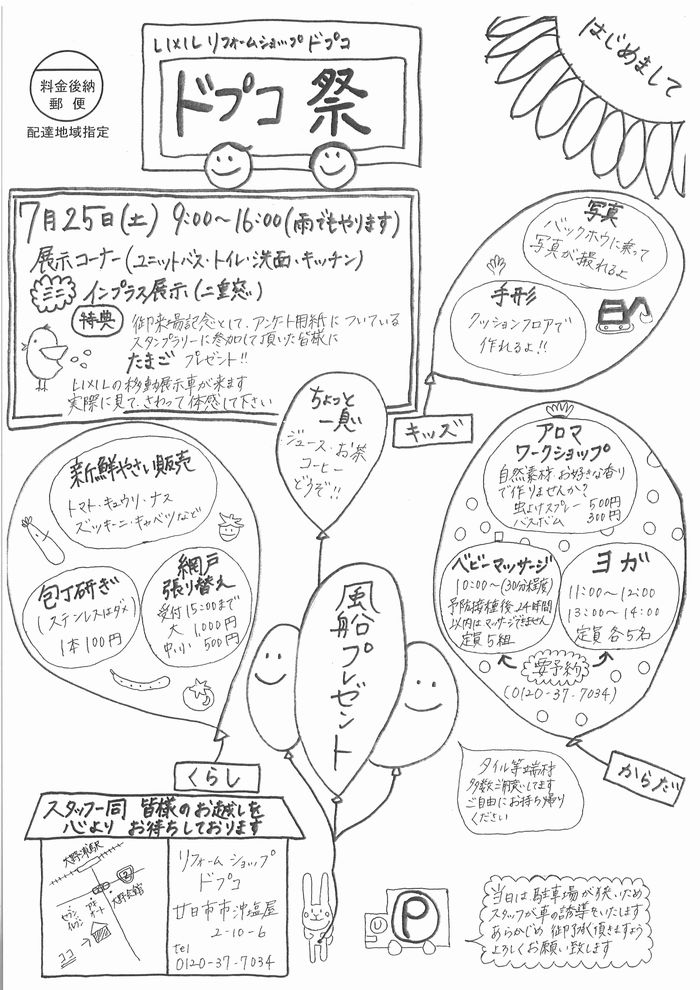 料金後納
郵便
配達地域指定
LIXIL リフォームショップ ドプコ
ドプコ 祭
はじめまして
7月25日(土) 9:00〜16:00(雨でもやります)
展示コーナー(ユニットバス・トイレ・洗面・キッチン)
ミニ インプラス展示(二重窓)
特典 御来場記念として、アンケート用紙についている
スタンプラリーに参加して頂いた皆様に
たまご プレゼント!!
LIXILの移動展示車が来ます
実際に見て、さわって体感して下さい
写真
バックホウに乗って
写真が撮れるよ
手形
クッションフロアで
作れるよ!!
キッズ
ちょっと
一息
ジュース・お茶
コーヒー
どうぞ!!
新鮮やさい販売
トマト・キュウリ・ナス
ズッキーニ・キャベツなど
包丁研ぎ
(ステンレスはダメ)
1本100円
網戸
張り替え
受付15:00まで
大 1,000円
中・小 500円
くらし
アロマ
ワークショップ
自然素材・お好きな香り
で作りませんか?
虫よけスプレー 500円
バスボム 300円
ベビーマッサージ
10:00〜(30分程度)
予防接種後24時間
以内はマッサージできません
定員5組
ヨガ
11:00〜12:00
13:00〜14:00
定員 各5名
要予約
(0120-37-7034)
からだ
風船プレゼント
タイル等端材
多数ご用意してます
ご自由にお持ち帰り
ください
スタッフ一同 皆様のお越しを
心より お待ちしております
大野浦駅
2
大野会館
セブンイレブン
ココ
リフォーム ショップ
ドプコ
廿日市市沖塩屋
2-10-6
tel
0120-37-7034
P
当日は、駐車場が狭いため
スタッフが車の誘導をいたします
あらかじめ 御了承頂きますよう
よろしくお願い致します